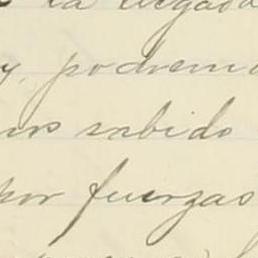 la llegada
y, podremo
sabido
por fuerzas